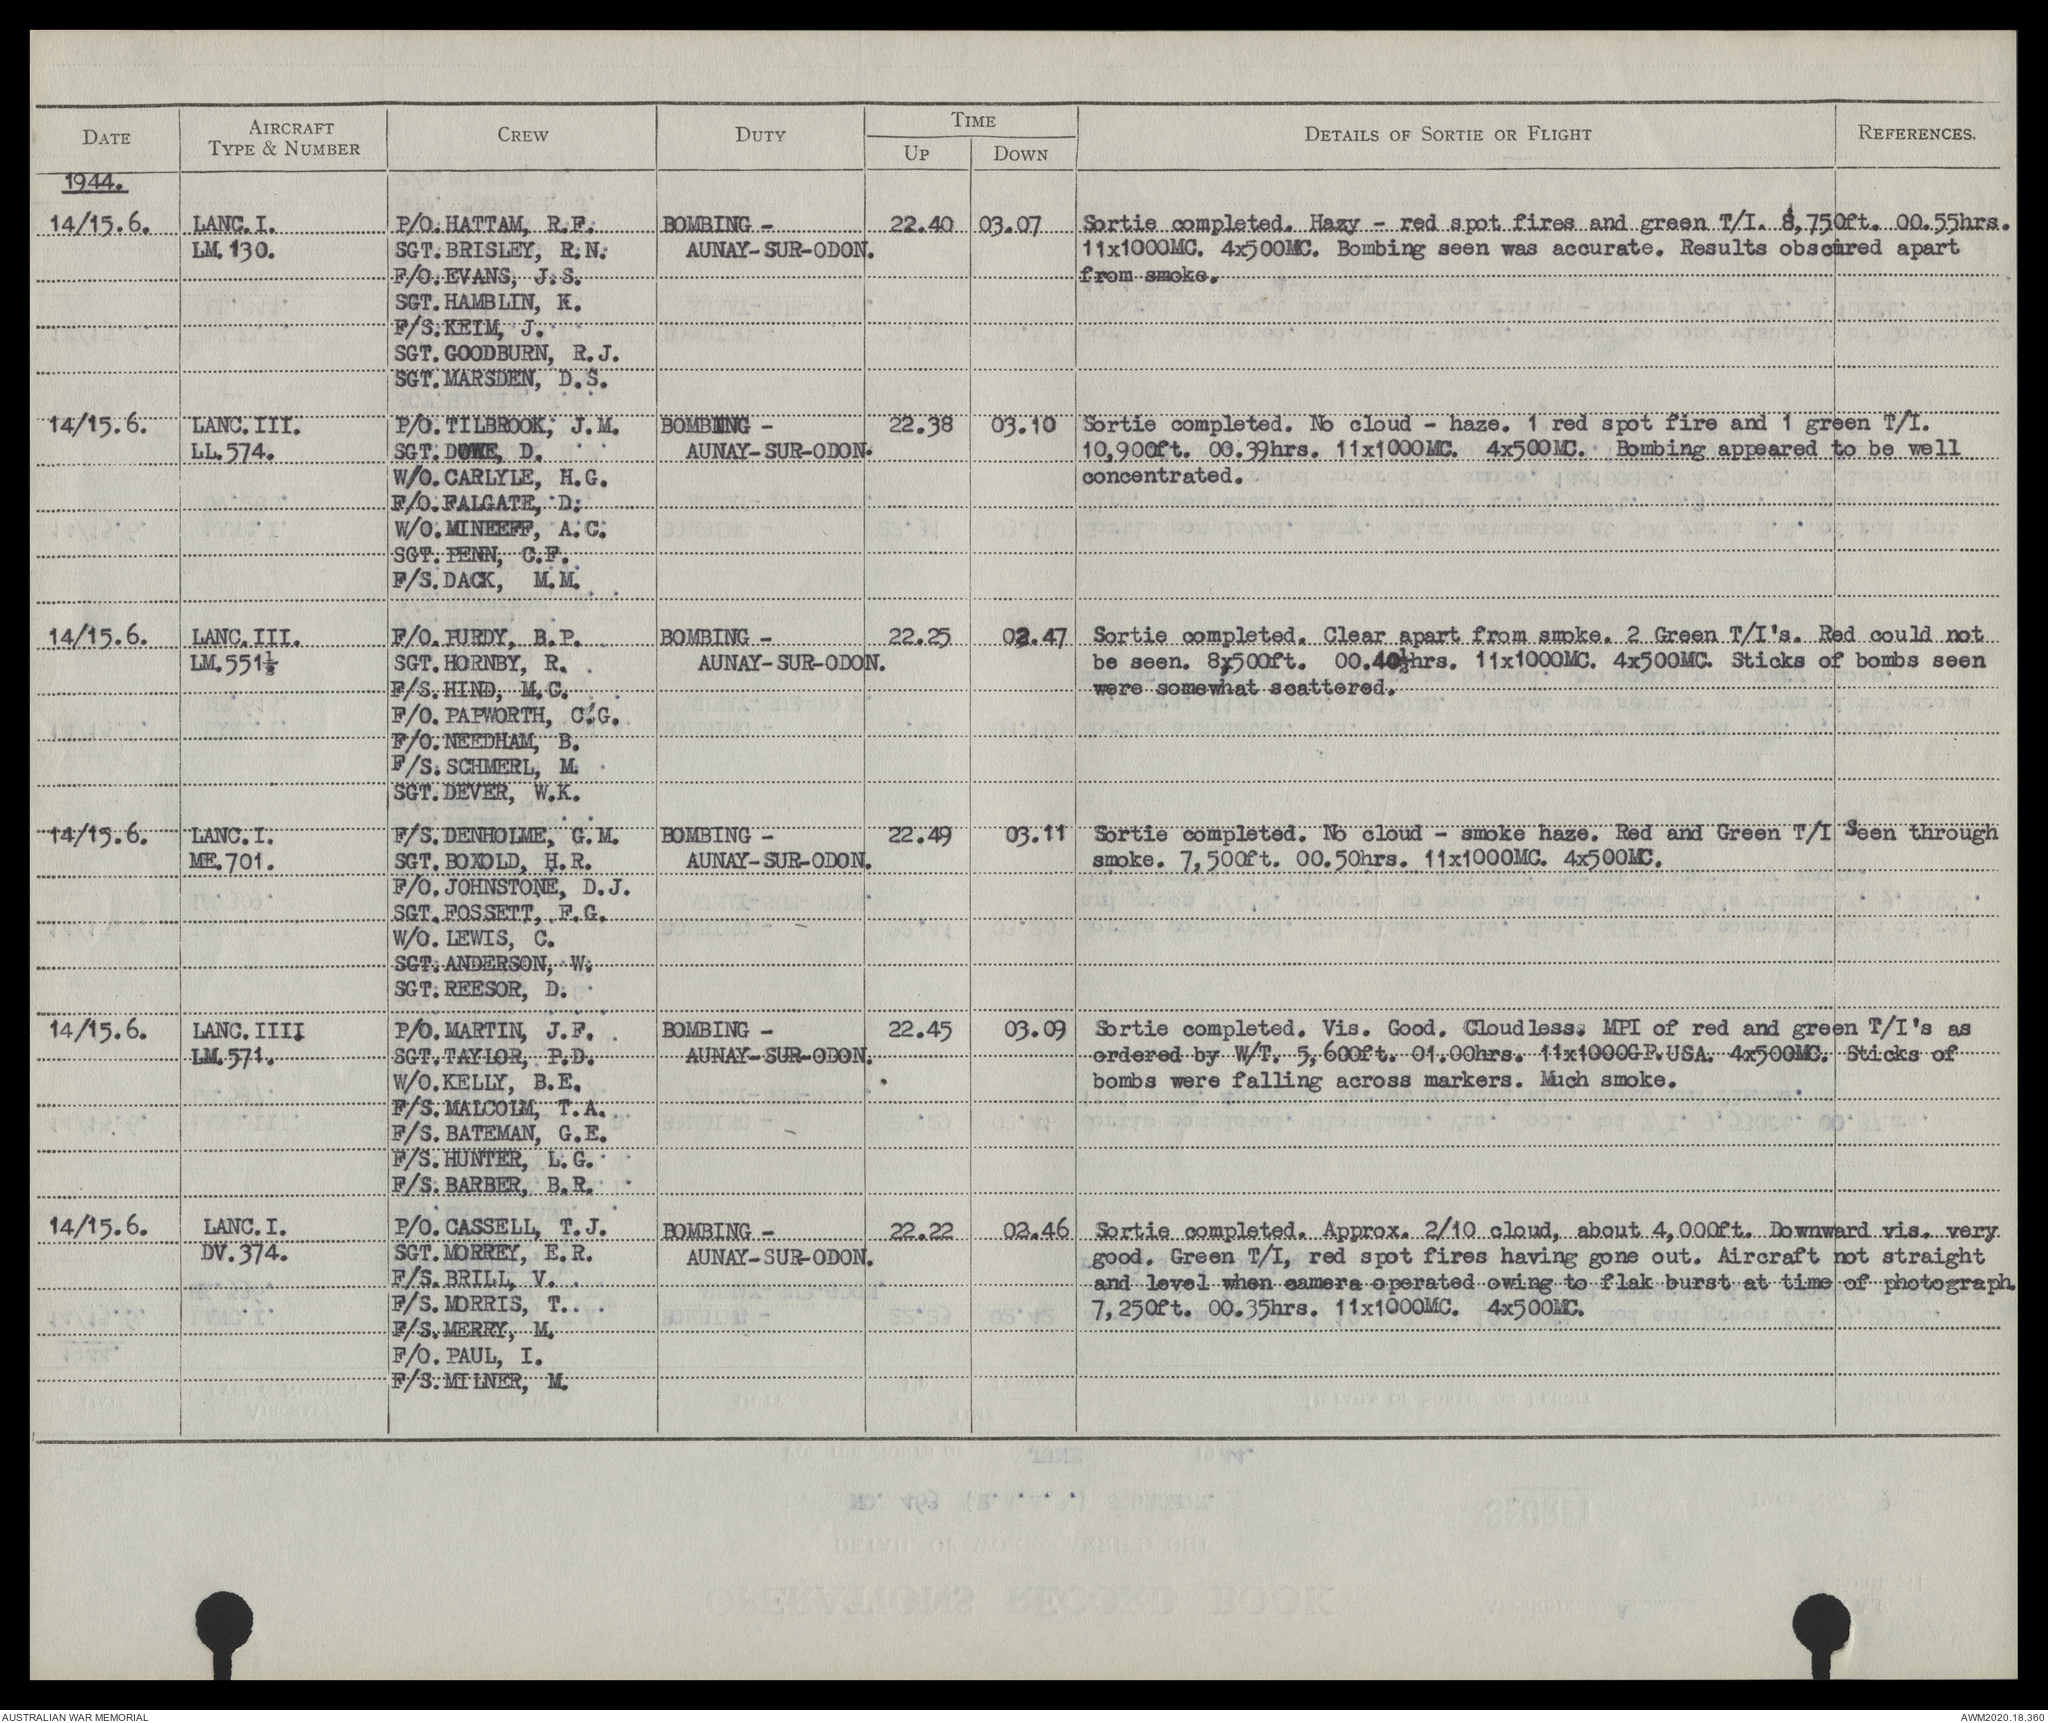 DATE
AIRCRAFT
TYPE & NUMBER
CREW
DUTY
TIME
UP
DOWN
DETAILS OF SORTIE OR FLIGHT
REFERENCES.
1944.
14/15.6. LANC.I. P/O.HATTAM, R.F. BOMBING - 22.40 03.07 Sortie completed. Hazy - red spot fires and green T/I. 8,750ft. 00.55hrs.
LM.130. SGT.BRISLEY, R.N. AUNAY-SUR-ODON. 11x1000MC. 4x500MC. Bombing seen was accurate. Results obscured apart
F/O.EVANS, J.S. from smoke.
SGT.HAMBLIN, K.
F/S.KEIM, J.
SGT.GOODBURN, R.J.
SGT.MARSDEN, D.S.
14/15.6. LANC.III. P/O.TILBROOK, J.M. BOMBING - 22.38 03.10 Sortie completed. No cloud - haze. 1 red spot fire and 1 green T/I.
LL.574. SGT. D. AUNAY-SUR-ODON. 10,900ft. 00.39hrs. 11x1000MC. 4x500MC. Bombing appeared to be well
W/O.CARLYLE, H.G. concentrated.
F/O.FALGATE, D.
W/O.MINEEFF, A.C.
SGT.PENN, C.F.
F/S.DACK, M.M.
14/15.6. LANC.III. F/O.PURDY, B.P. BOMBING - 22.25 02.47 Sortie completed. Clear apart from smoke. 2 Green T/I's. Red could not
LM.551½ SGT.HORNBY, R. AUNAY-SUR-ODON. be seen. 8,500ft. 00.40½hrs. 11x1000MC. 4x500MC. Sticks of bombs seen
F/S.HIND, M.C. were somewhat scattered.
F/O.PAPWORTH, C.G.
F/O.NEEDHAM, B.
F/S.SCHMERL, M.
SGT.DEVER, W.K.
14/15.6. LANC.I. F/S.DENHOLME, G.M. BOMBING - 22.49 03.11 Sortie completed. No cloud - smoke haze. Red and Green T/I Seen through
ME.701. SGT.BOXOLD, H.R. AUNAY-SUR-ODON. smoke. 7,500ft. 00.50hrs. 11x1000MC. 4x500MC.
F/O.JOHNSTONE, D.J.
SGT.FOSSETT, F.G.
W/O.LEWIS, C.
SGT.ANDERSON, W.
SGT.REESOR, D.
14/15.6. LANC.IIII P/O.MARTIN, J.F. BOMBING - 22.45 03.09 Sortie completed. Vis. Good. Cloudless. MPI of red and green T/I's as
LM.571. SGT.TAYLOR, P.D. AUNAY-SUR-ODON. ordered by W/T. 5,600ft. 01.00hrs. 11x1000GP.USA. 4x500MC. Sticks of
W/O.KELLY, B.E. bombs were falling across markers. Much smoke.
F/S.MALCOLM, T.A.
F/S.BATEMAN, G.E.
F/S.HUNTER, L.G.
F/S.BARBER, B.R.
14/15.6. LANC.I. P/O.CASSELL, T.J. BOMBING - 22.22 02.46 Sortie completed. Approx. 2/10 cloud, about 4,000ft. Downward vis. very
DV.374. SGT.MORREY, E.R. AUNAY-SUR-ODON. good. Green T/I, red spot fires having gone out. Aircraft not straight
F/S.BRILL, V. and level when camera operated owing to flak burst at time of photograph.
F/S.MORRIS, T. 7,250ft. 00.35hrs. 11x1000MC. 4x500MC.
F/S.MERRY, M.
F/O.PAUL, I.
F/S.MILNER, M.
AUSTRALIAN WAR MEMORIAL
AWM2020.18.360